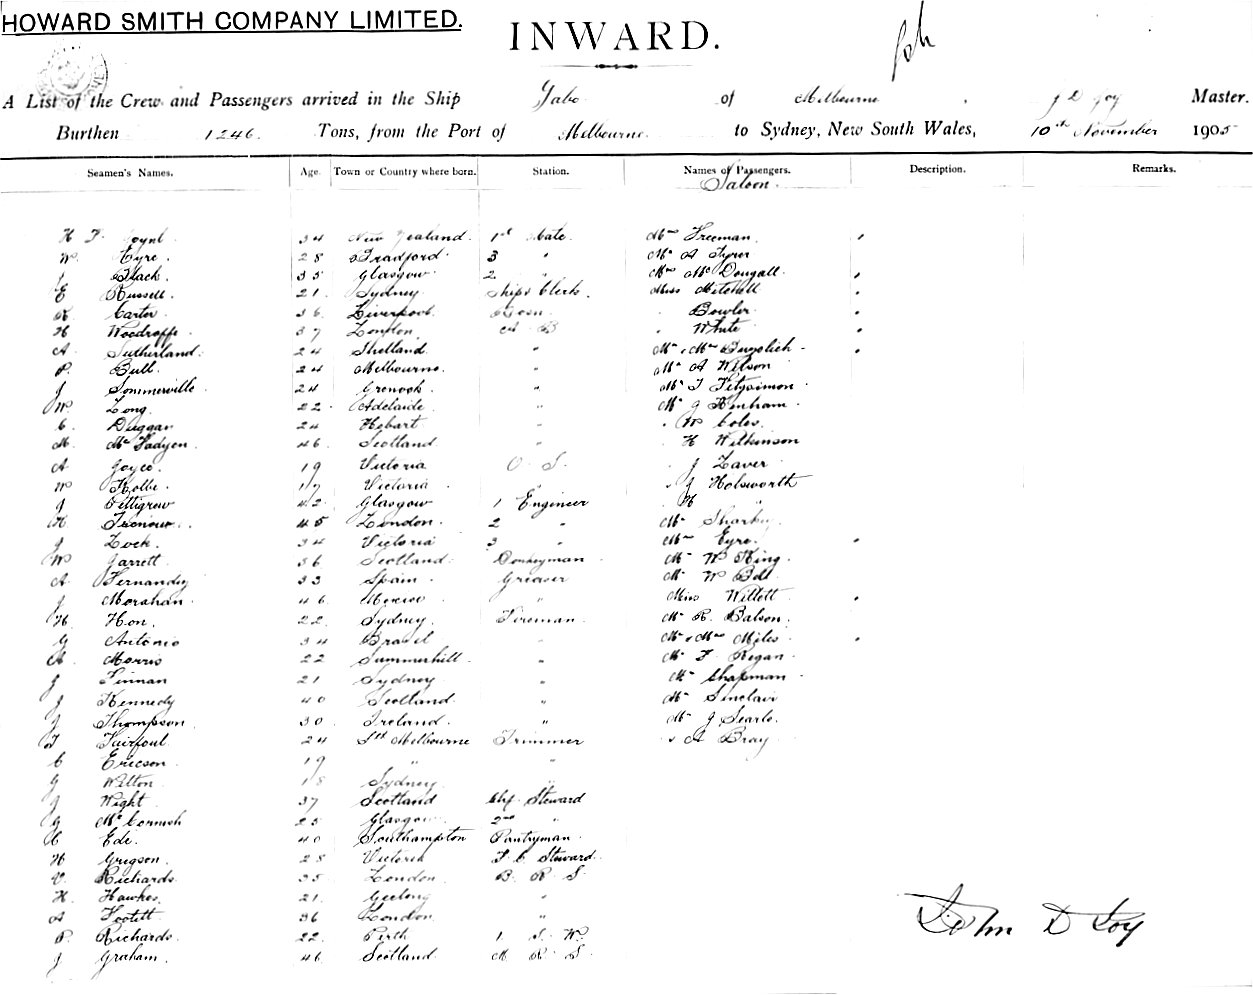 HOWARD SMITH COMPANY LIMITED.
INWARD.
A List of the Crew and Passengers arrived in the Ship Gabo of Melbourne J D Joy Master.
Burthen 1246 Tons, from the Port of Melbourne to Sydney, New South Wales, 10th November 1905
Seamen's Names. Age. Town or Country where born. Station. Names of Passengers. Description. Remarks.
Saloon.
H F 34 New Zealand. 1st Mate. Mrs Freeman
W. Eyre. 28 Bradford 3 " Mr A
J Black. 35 Glasgow 2 " Mrs McDougall
E Russell. 21 Sydney Ships Clerk. Miss Mitchell
R Carter 36 Liverpool Bosn " Bowler
H Woodroffe 37 London A B " White
A Sutherland. 24 Shetland " Mr & Mrs
P Bull 24 Melbourne. " Mr A Wilson
J Sommerville 24 Grenock " Mr T Fitzsimon
W Long 22 Adelaide " Mr J Hinham
C Duggan 24 Hobart " " W Coles
M. McFadyen 46 Scotland " " H Wilkinson
A Joyce. 19 Victoria O S. " J Laver
W Kolbe 17 Victoria " " J Holsworth
J Pettigrew 42 Glasgow 1 Engineer " H "
H 45 London 2 " Mr Sharkey
J Lock. 34 Victoria 3 " Mrs Eyre.
W Garrett 36 Scotland Donkeyman Mr W King
A Fernandez 33 Spain Greaser Mr W Bell
J Morahan 46 " Miss Willett
H. Hon. 22 Sydney. Fireman Mr R. Balson.
G Antonio 34 Brazil " Mr & Mrs Miles
A. Morris 22 Summerhill " Mr F Regan
J Finnan 21 Sydney " Mr Chapman
J Kennedy 40 Scotland " Mr Sinclair
J Thompson 30 Ireland. " Mr J Searle.
T Fairfoul 24 Sth Melbourne Trimmer " A Bray
C Ericson 19 " "
G Wilton 18 Sydney "
J Wight 37 Scotland Chf. Steward
G McCormish 25 Glasgow 2nd "
C Ede. 40 Southampton Pantryman
H Gregson. 28 Victoria F C Steward.
V. Richards 35 London B R S
H. Hawkes 21 Geelong "
A Footitt 36 London "
P. Richards. 22 Perth 1 S. W.
J Graham. 46 Scotland M R S.
John D Joy